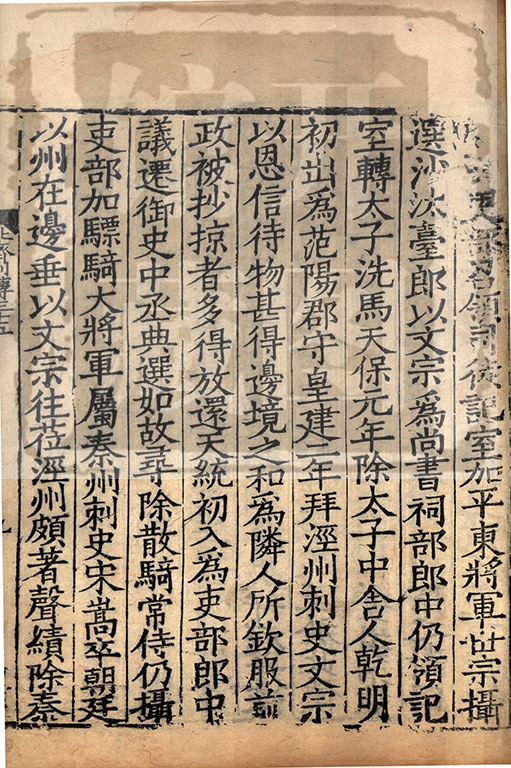 吏部召領司徒記室加平東將軍世宗攝
選沙汰臺郎以文宗爲尚書祠部郎中仍領記
室轉太子洗馬天保元年除太子中舎人乾明
初出爲范陽郡守皇建二年拜涇州刺史文宗
以恩信待物甚得邊境之和爲隣人所欽服前
政被抄掠者多得放還天統初入爲吏部郎中
議遷御史中丞典選如故尋除散騎常侍仍攝
吏部加驃騎大將軍屬秦州刺史宋嵩卒朝廷
以州在邊垂以文宗往莅涇州頗著聲績除秦